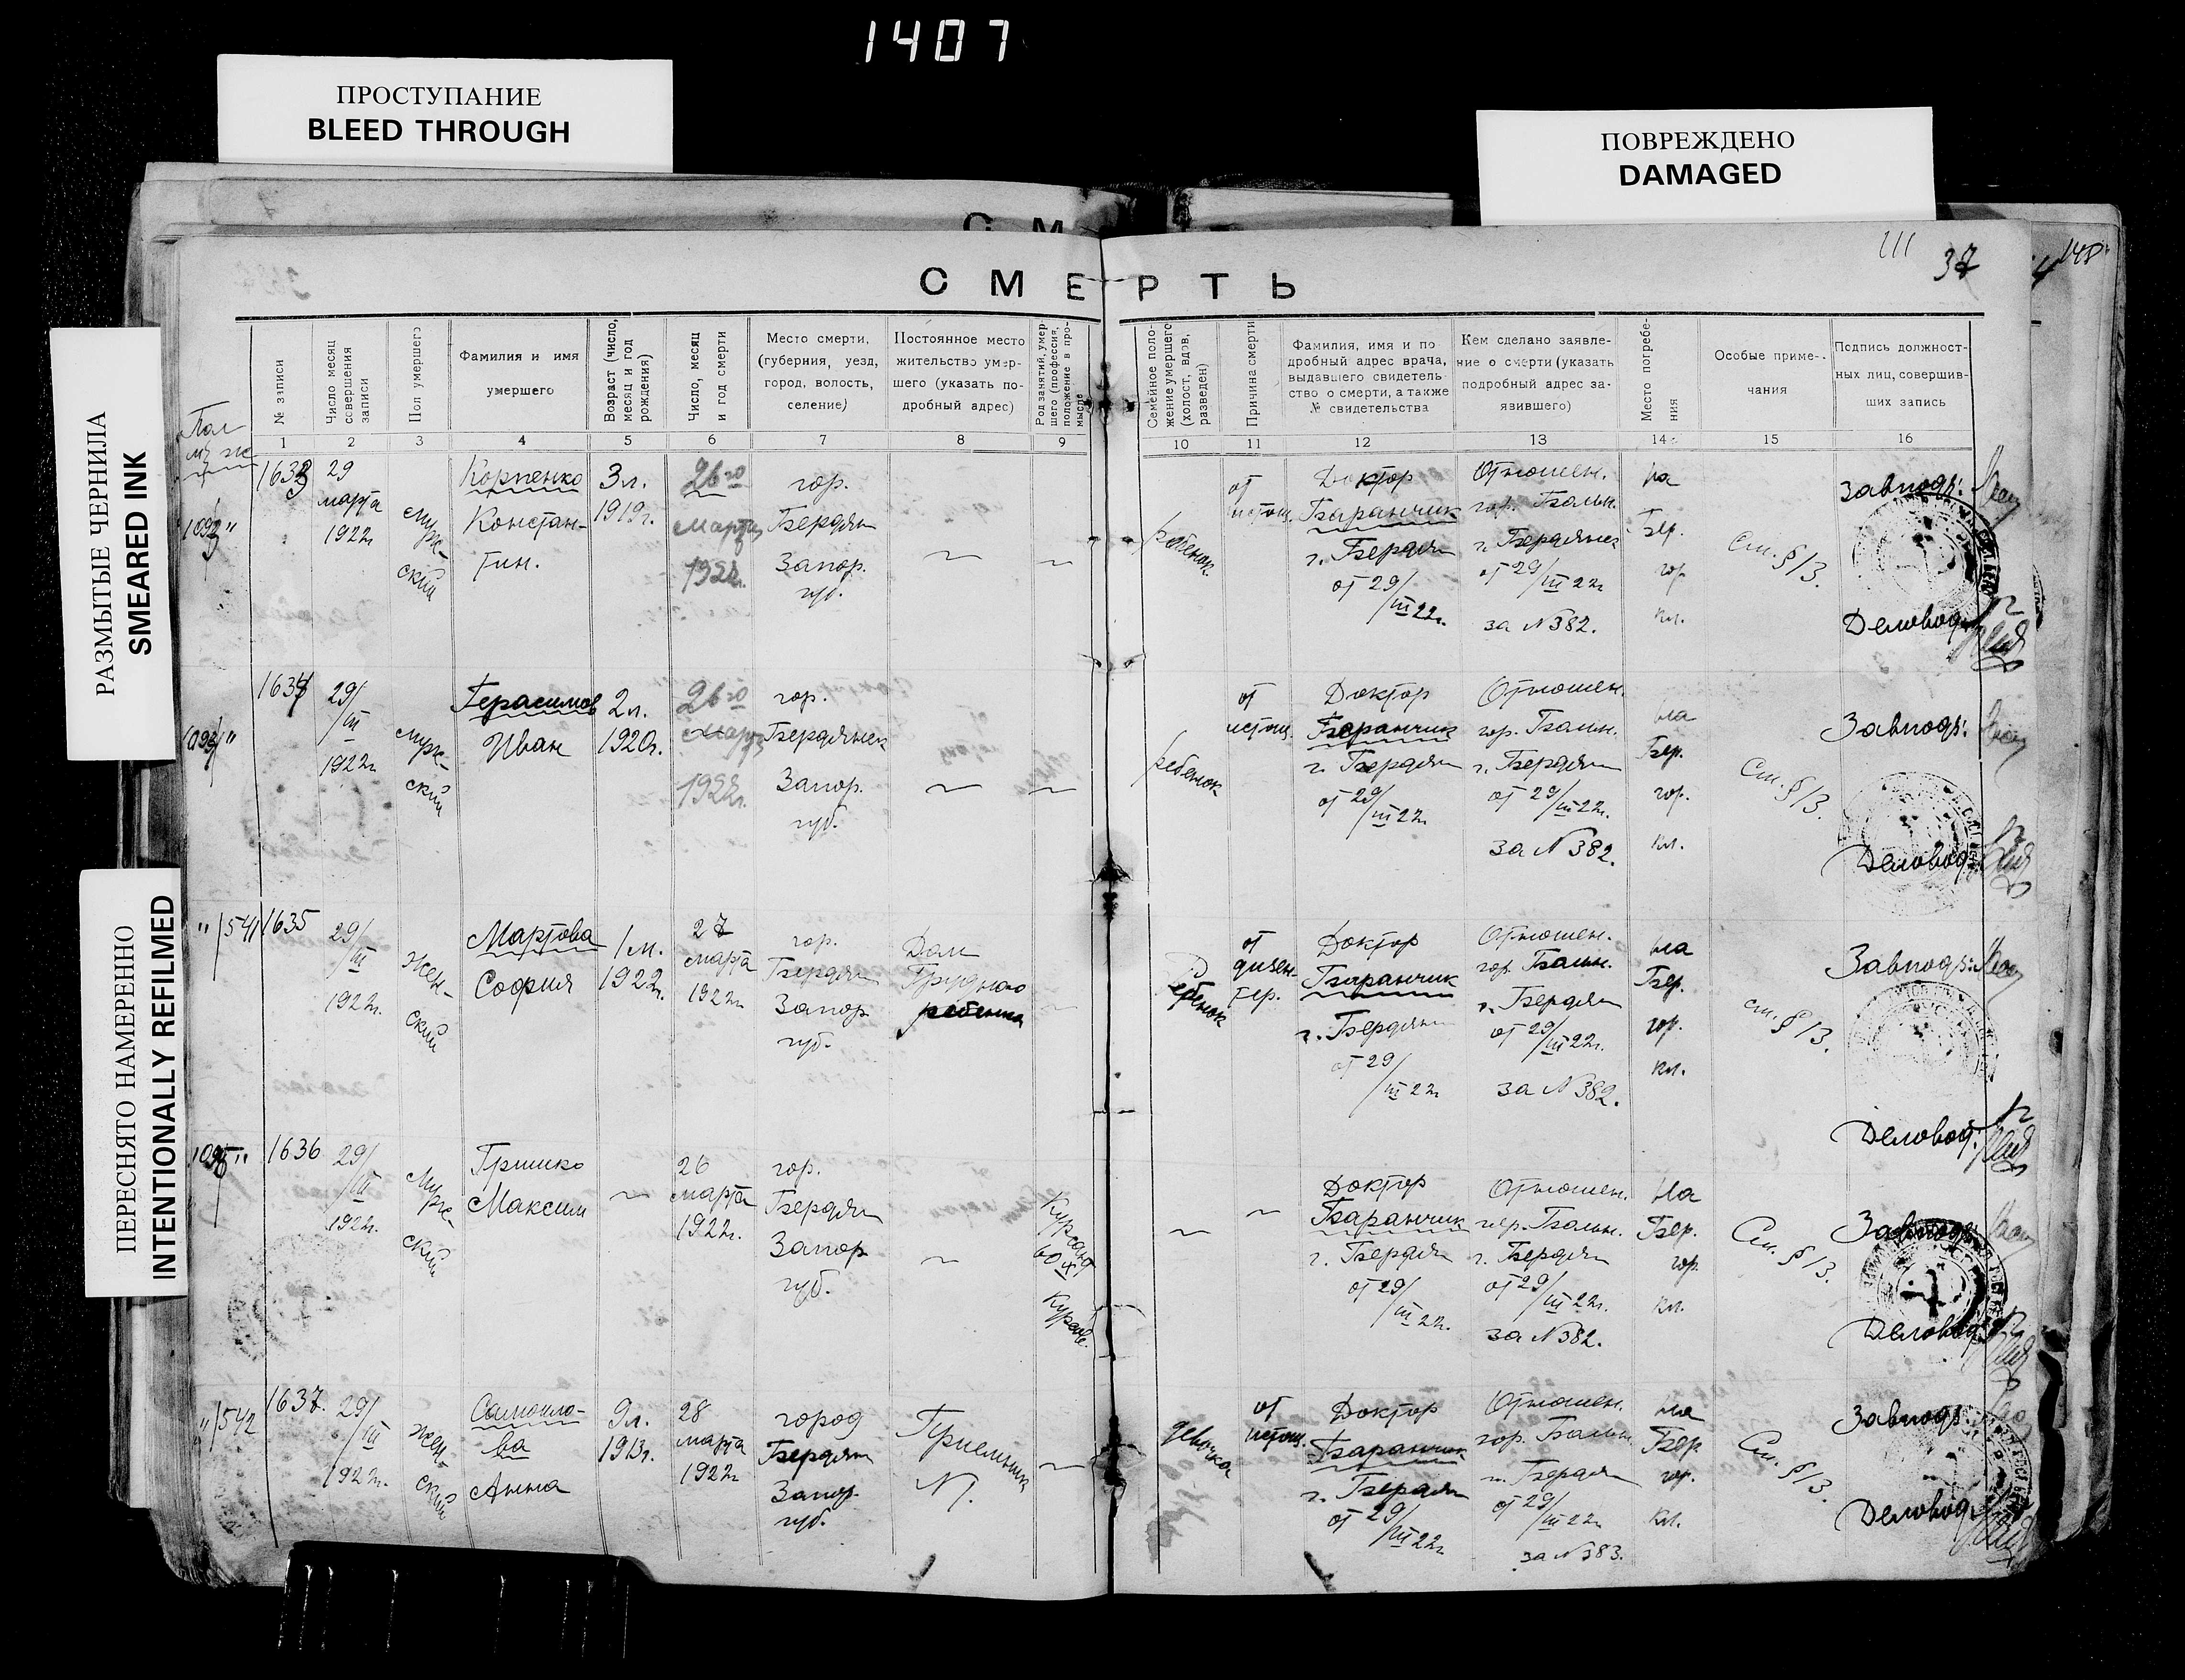 1407
ПРОСТУПАНИЕ
BLEED THROUGH
ПОВРЕЖДЕНО
DAMAGED
РАЗМЫТЫЕ ЧЕРНИЛА
SMEARED INK
ПЕРЕСНЯТО НАМЕРЕННО
INTENTIONALLY REFILMED
111
37
СМЕРТЬ
№ записи
Число месяц
совершения
записи
Пол умершего
Фамилия и имя
умершего
Возраст (число,
месяц и год
рождения)
Число, месяц
и год смерти
Место смерти,
(губерния, уезд,
город, волость,
селение)
Постоянное место
жительство умер-
шего (указать по-
дробный адрес)
Род занятий, умер-
шего (профессия,
положение в про-
мысле
Семейное поло-
жение умершего
(холост, вдов,
разведен)
Причина смерти
Фамилия, имя и по
дробный адрес врача,
выдавшего свидетель
ство о смерти, а также
№ свидетельства
Кем сделано заявле-
ние о смерти (указать
подробный адрес за-
явившего)
Место погребе-
ния
Особые приме-
чания
Подпись должност-
ных лиц, совершив-
ших запись
1 2 3 4 5 6 7 8 9 10 11 12 13 14 15 16
Пол
м ж
1633
29
марта
1922г
муж-
ский
Корпенко
Констан-
тин.
3 л.
1919г.
26го
марта
1922г.
гор.
Бердян
Запор.
губ.
ребенок
от
истощ.
Доктор
Баранчик
г. Бердян
от 29/III 22г.
Отношен.
гор. Больн.
г. Бердянск
от 29/III 22г
за № 382.
На
Бер.
гор
кл.
См. § 13.
Завподъ:
Деловод:
1634
29/III
1922г
муж-
ский
Герасимов
Иван
2 л.
1920г.
26го
марта
1922г.
гор.
Бердянск
Запор.
губ.
ребенок
от
истощ.
Доктор
Баранчик
г. Бердян
от 29/III 22г.
Отношен.
гор. Больн.
г. Бердян
от 29/III 22г.
за № 382.
на
Бер.
гор.
кл.
См. § 13.
Завподъ:
Деловод:
" 541
1635
29/III
1922г.
Жен-
ский
Мартова
София
1 м.
1922г.
27
марта
1922г
гор.
Бердян
Запор
губ.
Дом
Грудного
ребенка
Ребенок
от
дизен-
тер.
Доктор
Баранчик
г. Бердян
от 29/III 22г
Отношен.
гор. Больн.
г. Бердян
от 29/III 22г.
за № 382.
на
Бер.
гор.
кл.
См. § 13.
Завподъ:
Деловод:
1636
29/III
1922г.
Муж-
ский
Гришко
Максим
26
марта
1922г.
гор.
Бердян
Запор
губ.
Курсант
Доктор
Баранчик
г. Бердян
от 29/III 22г.
Отношен.
гор. Больн.
г. Бердян
от 29/III 22г.
за № 382.
На
Бер.
гор
кл.
См. § 13.
Завподъ:
Деловод:
" 542
1637.
29/III
1922г.
Жен-
ский
Самойло-
ва
Анна
9 л.
1913г.
28
марта
1922г
город
Бердян
Запор.
губ.
Приемник
девочка
от
истощ.
Доктор
Баранчик
г. Бердян
от 29/III 22г
Отношен.
гор. Больн
г. Бердян
от 29/III 22г
за № 383.
на
Бер
гор.
кл.
См. § 13.
Завподъ:
Деловод: